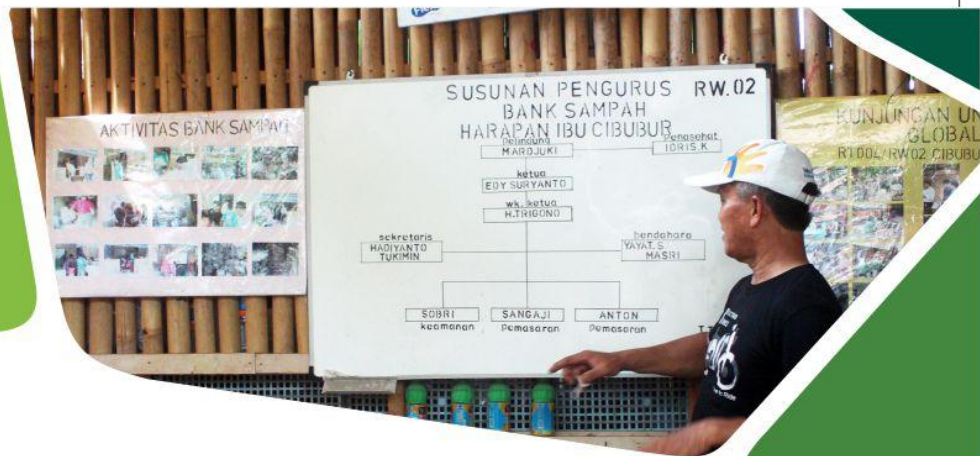 SUSUNAN PENGURUS RW.02
BANK SAMPAH
HARAPAN IBU CIBUBUR
Pelindung
MARDJUKI
Penasehat
IDRIS.K
ketua
EDY SURYANTO
wk. ketua
H.TRIGONO
sekretaris
HADIYANTO
TUKIMIN
bendahara
YAYAT.S
MASRI
SOBRI
keamanan
SANGAJI
Pemasaran
ANTON
Pemasaran
AKTIVITAS BANK SAMPAH
KUNJUNGAN UN
GLOBAL
RT.004/RW.02 CIBUBU